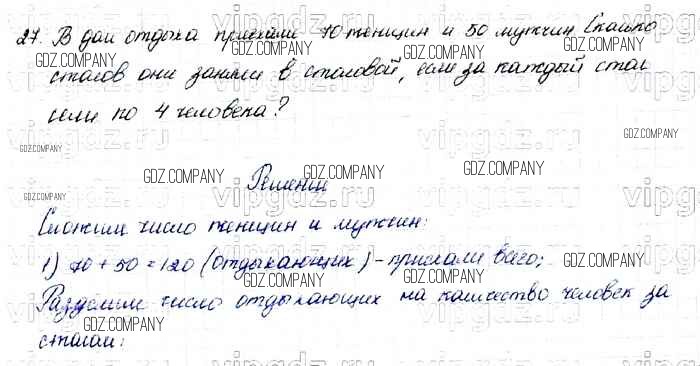 27. В дом отдыха приехали 70 женщин и 50 мужчин. Сколько
столов они заняли в столовой, если за каждый стол
сели по 4 человека?
GDZ.COMPANY GDZ.COMPANY GDZ.COMPANY GDZ.COMPANY
vipgdz.ru vipgdz.ru vipgdz.ru
GDZ.COMPANY GDZ.COMPANY GDZ.COMPANY
Решение
Сложим число женщин и мужчин:
1) 70 + 50 = 120 (отдыхающих) – приехали всего;
GDZ.COMPANY GDZ.COMPANY GDZ.COMPANY
Разделим число отдыхающих на количество человек за
GDZ.COMPANY GDZ.COMPANY GDZ.COMPANY
столом:
vipgdz.ru vipgdz.ru vipgdz.ru